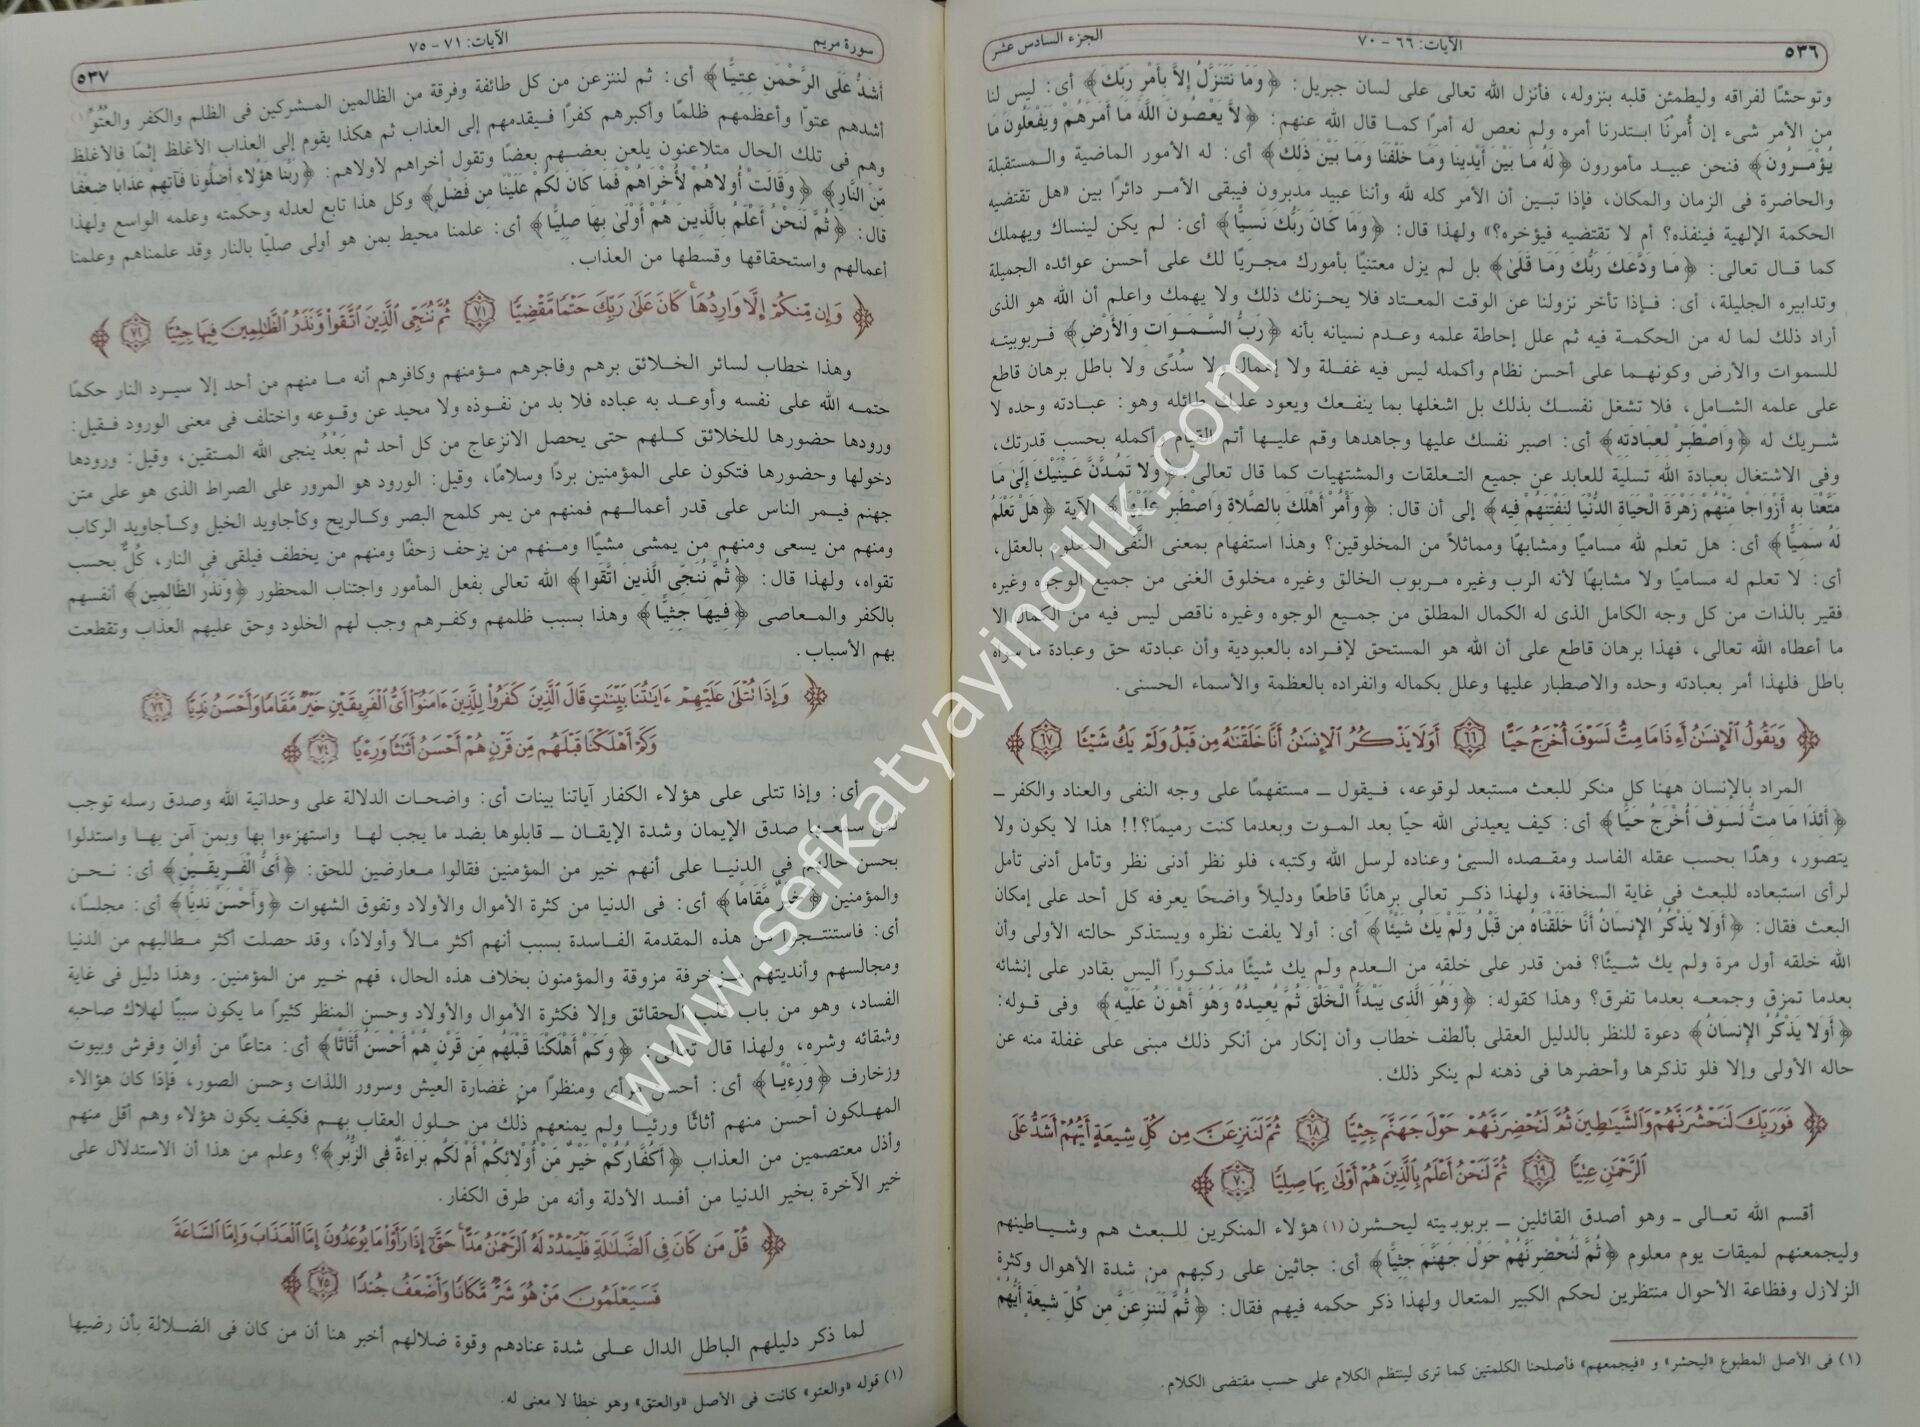 ٥٣٦
الآيات: ٦٦ - ٧٠
الجزء السادس عشر
وتوحشًا لفراقه وليطمئن قلبه بنزوله، فأنزل الله تعالى على لسان جبريل: ﴿وَمَا نَتَنَزَّلُ إِلاَّ بِأَمْرِ رَبِّكَ﴾ أى: ليس لنا
من الأمر شىء إن أُمرْنَا ابتدرنا أمره ولم نعص له أمرًا كما قال الله عنهم: ﴿لاَّ يَعْصُونَ اللَّهَ مَا أَمَرَهُمْ وَيَفْعَلُونَ مَا
يُؤْمَرُونَ﴾ فنحن عبيد مأمورون ﴿لَهُ مَا بَيْنَ أَيْدِينَا وَمَا خَلْفَنَا وَمَا بَيْنَ ذَلِكَ﴾ أى: له الأمور الماضية والمستقبلة
والحاضرة فى الزمان والمكان، فإذا تبين أن الأمر كله لله وأننا عبيد مدبرون فيبقى الأمر دائرًا بين «هل تقتضيه
الحكمة الإلهية فينفذه؟ أم لا تقتضيه فيؤخره؟» ولهذا قال: ﴿وَمَا كَانَ رَبُّكَ نَسِيًّا﴾ أى: لم يكن لينساك ويهملك
كما قال تعالى: ﴿مَا وَدَّعَكَ رَبُّكَ وَمَا قَلَىٰ﴾ بل لم يزل معتنيًا بأمورك مجريًا لك على أحسن عوائده الجميلة
وتدابيره الجليلة، أى: فإذا تأخر نزولنا عن الوقت المعتاد فلا يحزنك ذلك ولا يهمك واعلم أن الله هو الذى
أراد ذلك لما له من الحكمة فيه ثم علل إحاطة علمه وعدم نسيانه بأنه ﴿رَبُّ السَّمَوَاتِ وَالأَرْضِ﴾ فربوبيته
للسموات والأرض وكونهما على أحسن نظام وأكمله ليس فيه غفلة ولا إهمال ولا سُدًى ولا باطل برهان قاطع
على علمه الشامل، فلا تشغل نفسك بذلك بل اشغلها بما ينفعك ويعود عليك طائله وهو: عبادته وحده لا
شريك له ﴿وَاصْطَبِرْ لِعِبَادَتِهِ﴾ أى: اصبر نفسك عليها وجاهدها وقم عليها أتم القيام وأكمله بحسب قدرتك،
وفى الاشتغال بعبادة الله تسلية للعابد عن جميع التعلقات والمشتهيات كما قال تعالى: ﴿وَلا تَمُدَّنَّ عَيْنَيْكَ إِلَىٰ مَا
مَتَّعْنَا بِهِ أَزْوَاجًا مِّنْهُمْ زَهْرَةَ الْحَيَاةِ الدُّنْيَا لِنَفْتِنَهُمْ فِيهِ﴾ إلى أن قال: ﴿وَأْمُرْ أَهْلَكَ بِالصَّلاةِ وَاصْطَبِرْ عَلَيْهَا﴾ الآية ﴿هَلْ تَعْلَمُ
لَهُ سَمِيًّا﴾ أى: هل تعلم لله مساميًا ومشابهًا ومماثلاً من المخلوقين؟ وهذا استفهام بمعنى النَّفْى المعلوم بالعقل،
أى: لا تعلم له مساميًا ولا مشابهًا لأنه الرب وغيره مربوب الخالق وغيره مخلوق الغنى من جميع الوجوه وغيره
فقير بالذات من كل وجه الكامل الذى له الكمال المطلق من جميع الوجوه وغيره ناقص ليس فيه من الكمال إلا
ما أعطاه الله تعالى، فهذا برهان قاطع على أن الله هو المستحق لإفراده بالعبودية وأن عبادته حق وعبادة ما سواه
باطل فلهذا أمر بعبادته وحده والاصطبار عليها وعلل بكماله وانفراده بالعظمة والأسماء الحسنى.
﴿وَيَقُولُ الْإِنسَانُ أَءِذَا مَا مِتُّ لَسَوْفَ أُخْرَجُ حَيًّا ٦٦ أَوَلَا يَذْكُرُ الْإِنسَانُ أَنَّا خَلَقْنَاهُ مِن قَبْلُ وَلَمْ يَكُ شَيْئًا ٦٧﴾
المراد بالإنسان ههنا كل منكر للبعث مستبعد لوقوعه، فيقول ــ مستفهمًا على وجه النفى والعناد والكفر ــ
﴿أَئِذَا مَا مِتُّ لَسَوْفَ أُخْرَجُ حَيًّا﴾ أى: كيف يعيدنى الله حيًا بعد الموت وبعدما كنت رميمًا؟!! هذا لا يكون ولا
يتصور، وهذا بحسب عقله الفاسد ومقصده السيئ وعناده لرسل الله وكتبه، فلو نظر أدنى نظر وتأمل أدنى تأمل
لرأى استبعاده للبعث فى غاية السخافة، ولهذا ذكر تعالى برهانًا قاطعًا ودليلاً واضحًا يعرفه كل أحد على إمكان
البعث فقال: ﴿أَوَلا يَذْكُرُ الإِنسَانُ أَنَّا خَلَقْنَاهُ مِن قَبْلُ وَلَمْ يَكُ شَيْئًا﴾ أى: أولا يلفت نظره ويستذكر حالته الأولى وأن
الله خلقه أول مرة ولم يك شيئًا؟ فمن قدر على خلقه من العدم ولم يك شيئًا مذكورًا أليس بقادر على إنشائه
بعدما تمزق وجمعه بعدما تفرق؟ وهذا كقوله: ﴿وَهُوَ الَّذِى يَبْدَأُ الْخَلْقَ ثُمَّ يُعِيدُهُ وَهُوَ أَهْوَنُ عَلَيْهِ﴾ وفى قوله:
﴿أَوَلا يَذْكُرُ الإِنسَانُ﴾ دعوة للنظر بالدليل العقلى بألطف خطاب وأن إنكار من أنكر ذلك مبنى على غفلة منه عن
حاله الأولى وإلا فلو تذكرها وأحضرها فى ذهنه لم ينكر ذلك.
﴿فَوَرَبِّكَ لَنَحْشُرَنَّهُمْ وَالشَّيَاطِينَ ثُمَّ لَنُحْضِرَنَّهُمْ حَوْلَ جَهَنَّمَ جِثِيًّا ٦٨ ثُمَّ لَنَنزِعَنَّ مِن كُلِّ شِيعَةٍ أَيُّهُمْ أَشَدُّ عَلَى
الرَّحْمَٰنِ عِتِيًّا ٦٩ ثُمَّ لَنَحْنُ أَعْلَمُ بِالَّذِينَ هُمْ أَوْلَىٰ بِهَا صِلِيًّا ٧٠﴾
أقسم الله تعالى ـ وهو أصدق القائلين ــ بربوبيته ليحشرن (١) هؤلاء المنكرين للبعث هم وشياطينهم
وليجمعنهم لميقات يوم معلوم ﴿ثُمَّ لَنُحْضِرَنَّهُمْ حَوْلَ جَهَنَّمَ جِثِيًّا﴾ أى: جاثين على ركبهم من شدة الأهوال وكثرة
الزلازل وفظاعة الأحوال منتظرين لحكم الكبير المتعال ولهذا ذكر حكمه فيهم فقال: ﴿ثُمَّ لَنَنزِعَنَّ مِن كُلِّ شِيعَةٍ أَيُّهُمْ
(١) فى الأصل المطبوع «ليحشر» و «فيجمعهم» فأصلحنا الكلمتين كما ترى لينتظم الكلام على حسب مقتضى الكلام.
سورة مريم
الآيات: ٧١ - ٧٥
٥٣٧
أَشَدُّ عَلَى الرَّحْمَنِ عِتِيًّا﴾ أى: ثم لننزعن من كل طائفة وفرقة من الظالمين المشركين فى الظلم والكفر والعتُوِّ(١)
أشدهم عتوّا وأعظمهم ظلمًا وأكبرهم كفرًا فيقدمهم إلى العذاب ثم هكذا يقوم إلى العذاب الأغلظ إثمًا فالأغلظ
وهم فى تلك الحال متلاعنون يلعن بعضهم بعضًا وتقول أخراهم لأولاهم: ﴿رَبَّنَا هَؤُلاءِ أَضَلُّونَا فَآتِهِمْ عَذَابًا ضِعْفًا
مِّنَ النَّارِ﴾ ﴿وَقَالَتْ أُولاهُمْ لأُخْرَاهُمْ فَمَا كَانَ لَكُمْ عَلَيْنَا مِن فَضْلٍ﴾ وكل هذا تابع لعدله وحكمته وعلمه الواسع ولهذا
قال: ﴿ثُمَّ لَنَحْنُ أَعْلَمُ بِالَّذِينَ هُمْ أَوْلَىٰ بِهَا صِلِيًّا﴾ أى: علمنا محيط بمن هو أولى صليّا بالنار وقد علمناهم وعلمنا
أعمالهم واستحقاقها وقسطها من العذاب.
﴿وَإِن مِّنكُمْ إِلَّا وَارِدُهَا كَانَ عَلَىٰ رَبِّكَ حَتْمًا مَّقْضِيًّا ٧١ ثُمَّ نُنَجِّى الَّذِينَ اتَّقَوا وَّنَذَرُ الظَّالِمِينَ فِيهَا جِثِيًّا ٧٢﴾
وهذا خطاب لسائر الخلائق برهم وفاجرهم مؤمنهم وكافرهم أنه ما منهم من أحد إلا سيرد النار حكمًا
حتمه الله على نفسه وأوعد به عباده فلا بد من نفوذه ولا محيد عن وقوعه واختلف فى معنى الورود فقيل:
ورودها حضورها للخلائق كلهم حتى يحصل الانزعاج من كل أحد ثم بَعْدُ ينجى الله المتقين، وقيل: ورودها
دخولها وحضورها فتكون على المؤمنين بردًا وسلامًا، وقيل: الورود هو المرور على الصراط الذى هو على متن
جهنم فيمر الناس على قدر أعمالهم فمنهم من يمر كلمح البصر وكالريح وكأجاويد الخيل وكأجاويد الركاب
ومنهم من يسعى ومنهم من يمشى مشيًا ومنهم من يزحف زحفًا ومنهم من يخطف فيلقى فى النار، كُلٌّ بحسب
تقواه، ولهذا قال: ﴿ثُمَّ نُنَجِّى الَّذِينَ اتَّقَوا﴾ الله تعالى بفعل المأمور واجتناب المحظور ﴿وَّنَذَرُ الظَّالِمِينَ﴾ أنفسهم
بالكفر والمعاصى ﴿فِيهَا جِثِيًّا﴾ وهذا بسبب ظلمهم وكفرهم وجب لهم الخلود وحق عليهم العذاب وتقطعت
بهم الأسباب.
﴿وَإِذَا تُتْلَىٰ عَلَيْهِمْ ءَايَاتُنَا بَيِّنَاتٍ قَالَ الَّذِينَ كَفَرُوا لِلَّذِينَ ءَامَنُوا أَىُّ الْفَرِيقَيْنِ خَيْرٌ مَّقَامًا وَأَحْسَنُ نَدِيًّا ٧٣
وَكَمْ أَهْلَكْنَا قَبْلَهُم مِّن قَرْنٍ هُمْ أَحْسَنُ أَثَاثًا وَرِءْيًا ٧٤﴾
أى: وإذا تتلى على هؤلاء الكفار آياتنا بينات أى: واضحات الدلالة على وحدانية الله وصدق رسله توجب
لمن سمعها صدق الإيمان وشدة الإيقان ــ قابلوها بضد ما يجب لها واستهزءوا بها وبمن آمن بها واستدلوا
بحسن حالهم فى الدنيا على أنهم خير من المؤمنين فقالوا معارضين للحق: ﴿أَىُّ الْفَرِيقَيْنِ﴾ أى: نحن
والمؤمنين ﴿خَيْرٌ مَّقَامًا﴾ أى: فى الدنيا من كثرة الأموال والأولاد وتفوق الشهوات ﴿وَأَحْسَنُ نَدِيًّا﴾ أى: مجلسًا،
أى: فاستنتجوا من هذه المقدمة الفاسدة بسبب أنهم أكثر مالاً وأولادًا، وقد حصلت أكثر مطالبهم من الدنيا
ومجالسهم وأنديتهم مزخرفة مزوقة والمؤمنون بخلاف هذه الحال، فهم خير من المؤمنين. وهذا دليل فى غاية
الفساد، وهو من باب قلب الحقائق وإلا فكثرة الأموال والأولاد وحسن المنظر كثيرًا ما يكون سببًا لهلاك صاحبه
وشقائه وشره، ولهذا قال تعالى: ﴿وَكَمْ أَهْلَكْنَا قَبْلَهُم مِّن قَرْنٍ هُمْ أَحْسَنُ أَثَاثًا﴾ أى: متاعًا من أوانٍ وفرش وبيوت
وزخارف ﴿وَرِءْيًا﴾ أى: أحسن مرأى ومنظرًا من غضارة العيش وسرور اللذات وحسن الصور، فإذا كان هؤلاء
المهلكون أحسن منهم أثاثًا ورئيا ولم يمنعهم ذلك من حلول العقاب بهم فكيف يكون هؤلاء وهم أقل منهم
وأذل معتصمين من العذاب ﴿أَكُفَّارُكُمْ خَيْرٌ مِّنْ أُولائِكُمْ أَمْ لَكُم بَرَاءَةٌ فِى الزُّبُرِ﴾؟ وعلم من هذا أن الاستدلال على
خير الآخرة بخير الدنيا من أفسد الأدلة وأنه من طرق الكفار.
﴿قُلْ مَن كَانَ فِى الضَّلَالَةِ فَلْيَمْدُدْ لَهُ الرَّحْمَٰنُ مَدًّا حَتَّىٰ إِذَا رَأَوْا مَا يُوعَدُونَ إِمَّا الْعَذَابَ وَإِمَّا السَّاعَةَ
فَسَيَعْلَمُونَ مَنْ هُوَ شَرٌّ مَّكَانًا وَأَضْعَفُ جُندًا ٧٥﴾
لما ذكر دليلهم الباطل الدال على شدة عنادهم وقوة ضلالهم أخبر هنا أن من كان فى الضلالة بأن رضيها
(١) قوله «والعتو» كانت فى الأصل «والعتق» وهو خطأ لا معنى له.
www.sefkatyayincilik.com